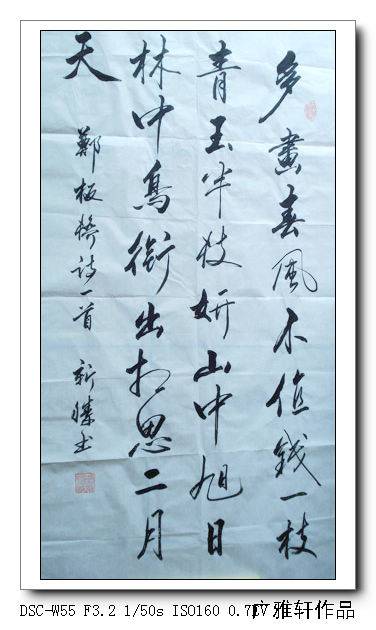 多画春风不值钱一枝
青玉半枝妍山中旭日
林中鸟衔出相思二月
天
郑板桥诗一首 新胜书
DSC-W55 F3.2 1/50s ISO160 0.7 广雅轩作品